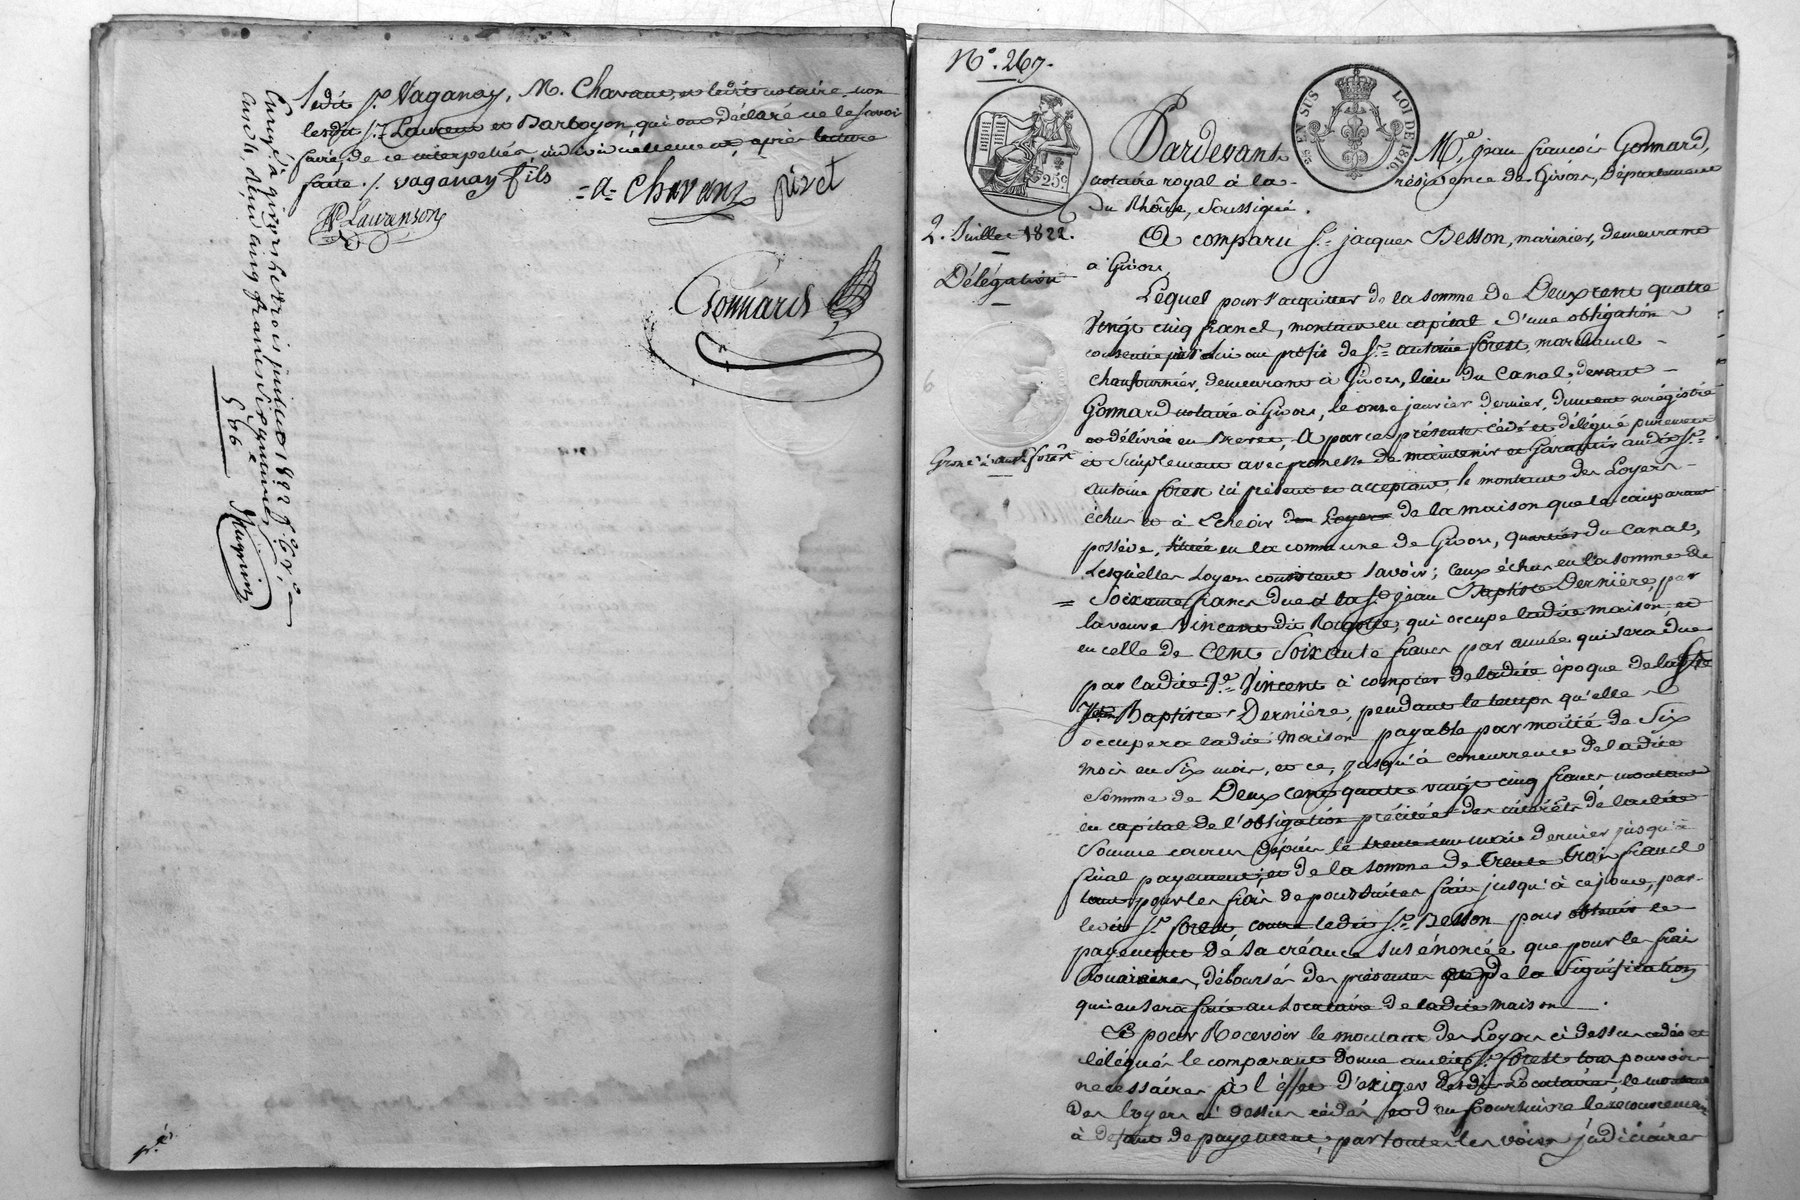 ledit sr. Vaganay, M. Chavant, et ledit notaire, non
lesdits srs. Laurent et Barboyon, qui ont déclaré ne le savoir
faire, de ce interpellés individuellement, après lecture
faite. /. vaganay fils = a = chavant pizet
Laurenson
Gonnard
Enregé. à givors le trois juillet 1822 fo.
cinq francs cinquante
5 50
N°. 267.
EN SUS LOI DE 1816
25c
Pardevant Me. jean françois Gonnard,
notaire royal à la résidence de Givors, département
du Rhône, soussigné.
2. Juillet 1822.
A comparu sr. jacques Besson, marinier, demeurant
à Givors,
Délégation
Lequel pour s'acquitter de la somme de Deux cent quatre
vingt cinq francs, montant en capital d'une obligation
consentie par lui au profit de sr. antoine forest, marchand
chaufournier, demeurant à Givors, lieu du Canal, devant
Gonnard notaire à Givors, le onze janvier dernier, dument enrégistrée
et délivrée en Brevet, A par ces présentes cédé et délégué purement
Grosse à aud. forest
et simplement avec promesse de maintenir et Garantir audit sr.
antoine forest ici présent et acceptant, le montant des Loyers
échus et à Echeoir des Loyers de la maison que le comparant
possède, située en la commune de Givors, quartier du Canal,
Lesquelles Loyers consistent savoir; ceux échus en la somme de
= Soixante francs due à la st. jean Baptiste Dernière, par
la veuve Vincent dit Rigotte, qui occupe ladite maison, et
en celle de cent soixante francs par année qui sera due
par ladite Ve. Vincent à compter de ladite époque de ladite St.
Jean Baptiste Dernière, pendant le temps qu'elle
occupera ladite maison payable par moitié de six
mois en six mois, et ce, jusqu'à concurrence de ladite
somme de Deux cent quatre vingt cinq francs montant
en capital de l'obligation précitée des intérêts de ladite
somme courus depuis le trente un mai dernier jusqu'à
final payement; et de la somme de trente trois francs
tant pour les frais de poursuites faits jusqu'à ce jour, par
ledit sr. forest, contre ledit sr. Besson pour obtenir le
payement de sa créance sus énoncée que pour les frais
honoraires, déboursés des présentes que de la signification
qui en sera faite au Locataire de ladite maison.
Et pour Recevoir le montant des Loyers ci dessus cédés et
délégués le comparant donne audit sr. forest tous pouvoirs
nécessaires à l'effet d'exiger desdits Locataires, le montant
des loyers ci dessus cédés, et d'en poursuivre le recouvrement
à défaut de payement, par toutes les voies judiciaires